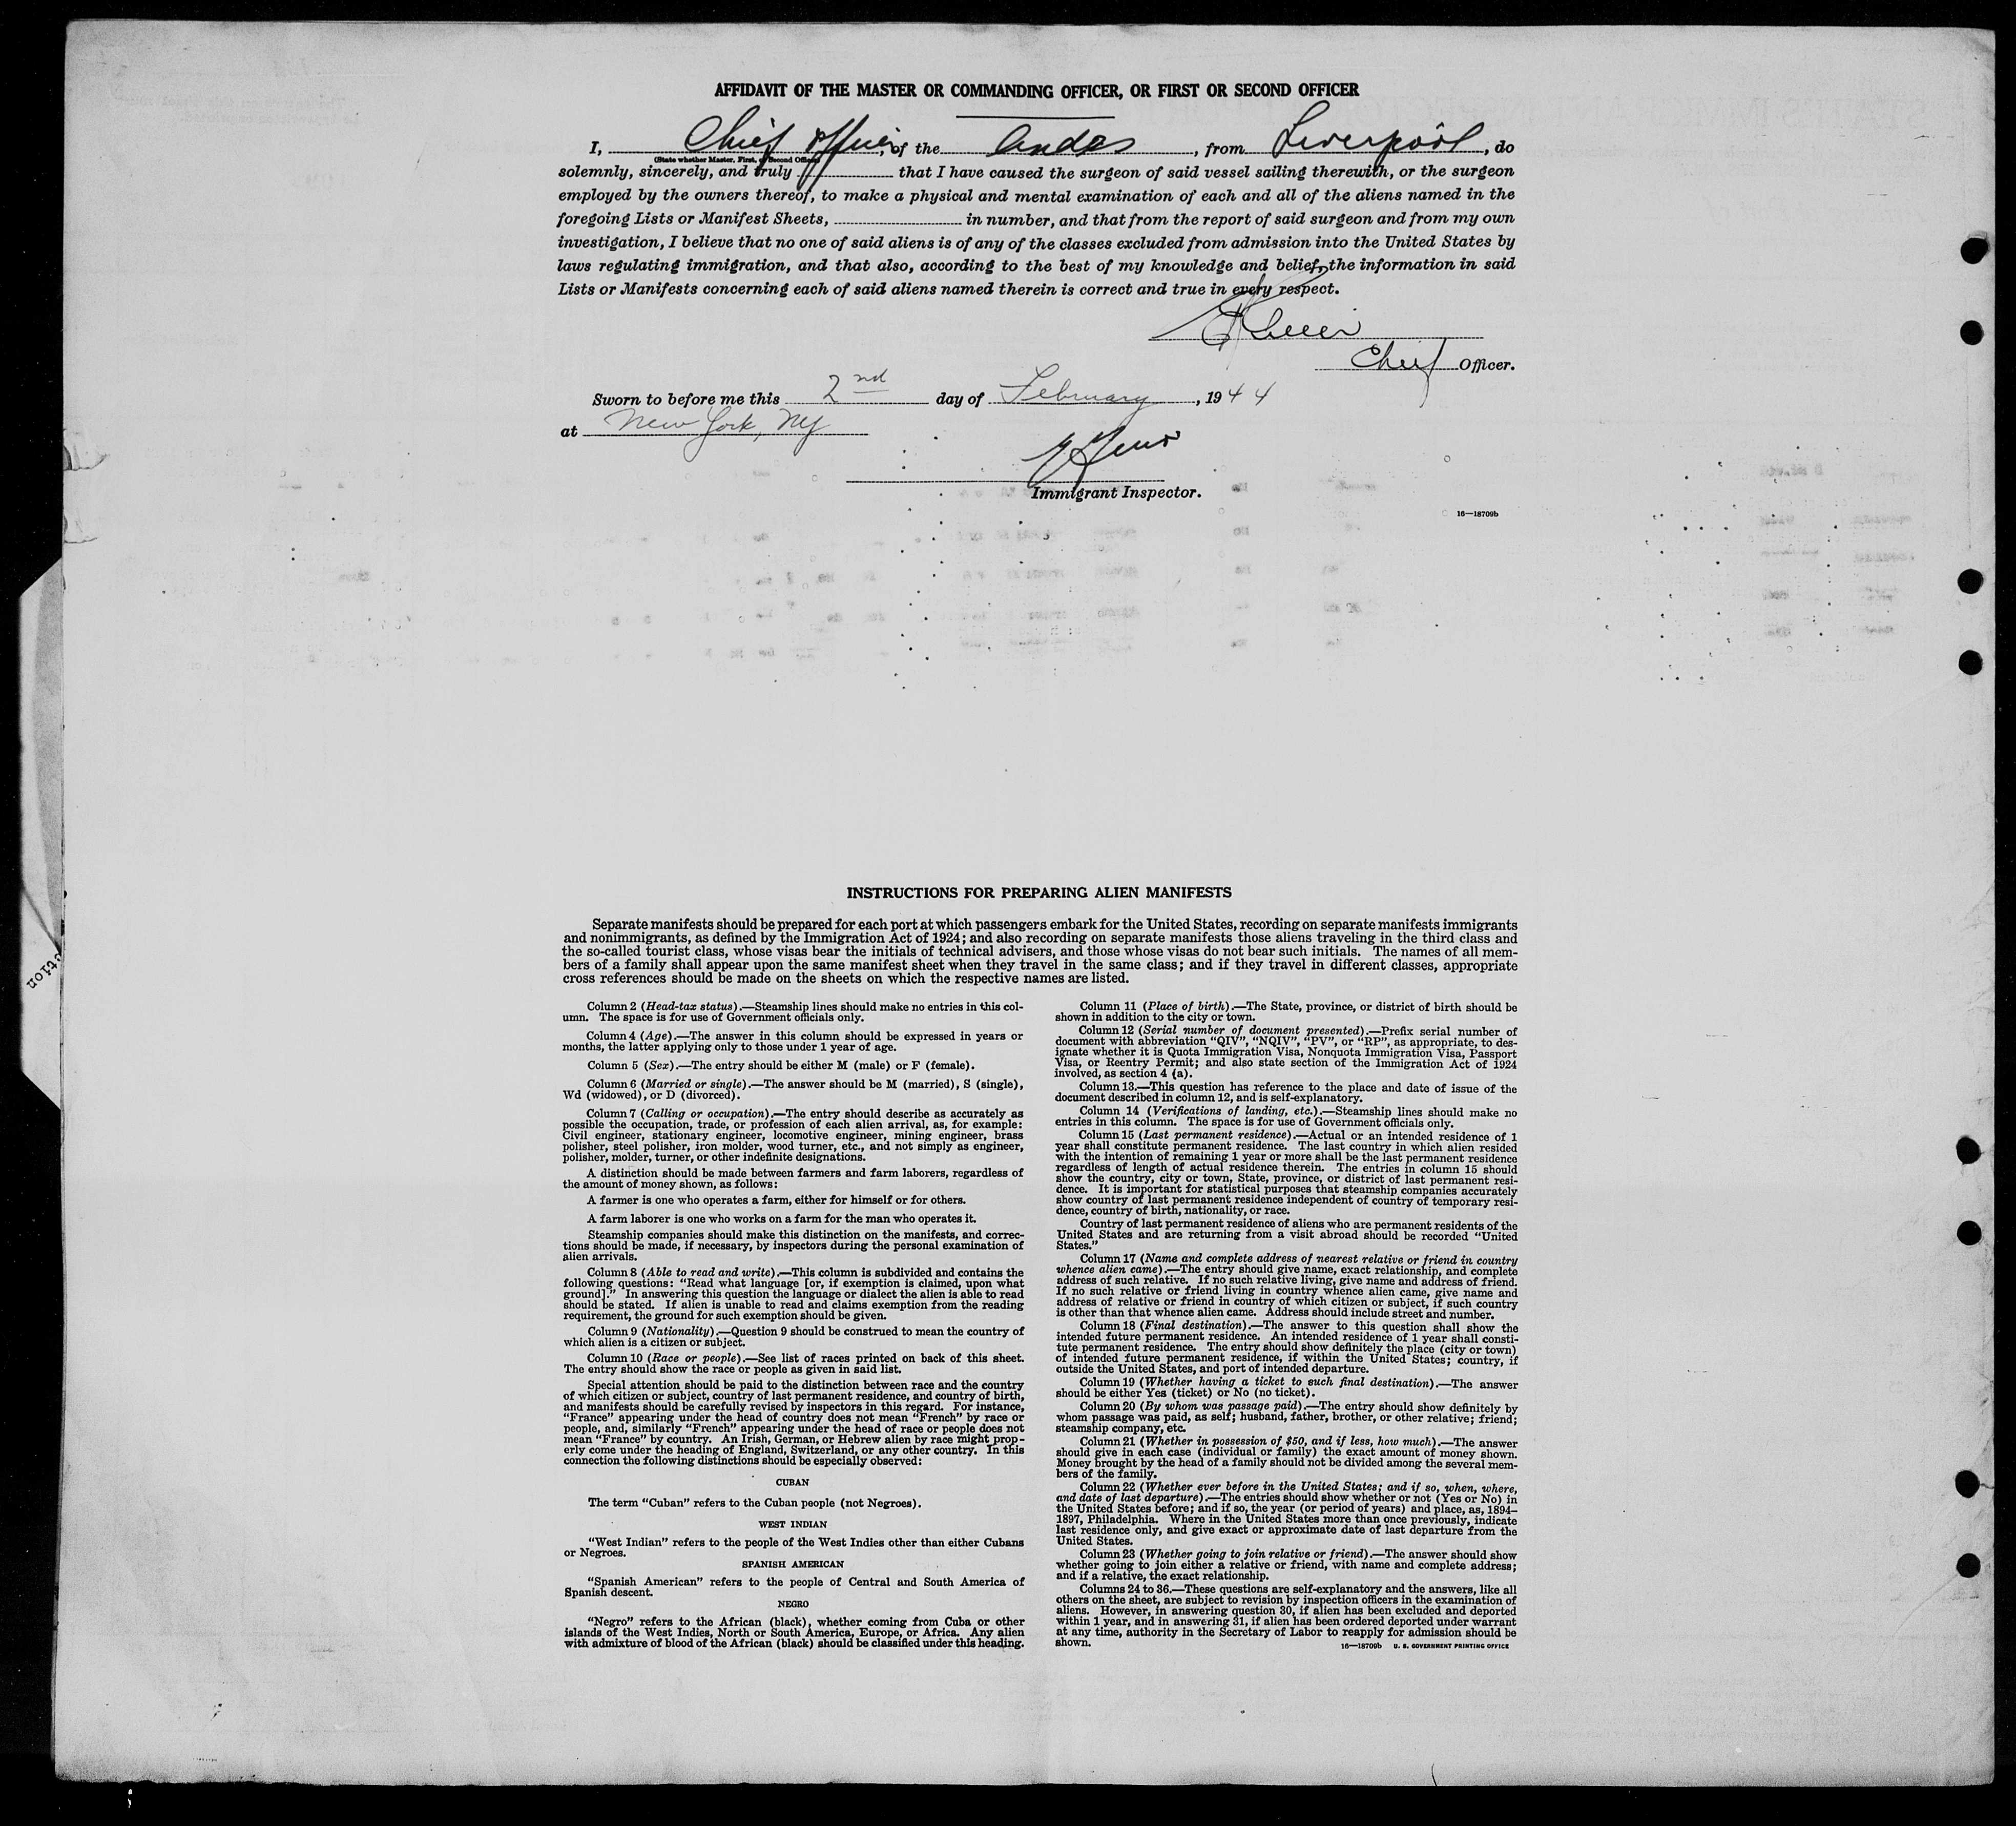 AFFIDAVIT OF THE MASTER OR COMMANDING OFFICER, OR FIRST OR SECOND OFFICER
I, Chief Officer, of the Andes, from Liverpool, do
(State whether Master, First, or Second Officer)
solemnly, sincerely, and truly that I have caused the surgeon of said vessel sailing therewith, or the surgeon
employed by the owners thereof, to make a physical and mental examination of each and all of the aliens named in the
foregoing Lists or Manifest Sheets, in number, and that from the report of said surgeon and from my own
investigation, I believe that no one of said aliens is of any of the classes excluded from admission into the United States by
laws regulating immigration, and that also, according to the best of my knowledge and belief, the information in said
Lists or Manifests concerning each of said aliens named therein is correct and true in every respect.
Chief Officer.
Sworn to before me this 2nd day of February, 1944
at New York, NY
Immigrant Inspector.
16—18709b
INSTRUCTIONS FOR PREPARING ALIEN MANIFESTS
Separate manifests should be prepared for each port at which passengers embark for the United States, recording on separate manifests immigrants
and nonimmigrants, as defined by the Immigration Act of 1924; and also recording on separate manifests those aliens traveling in the third class and
the so-called tourist class, whose visas bear the initials of technical advisers, and those whose visas do not bear such initials. The names of all mem-
bers of a family shall appear upon the same manifest sheet when they travel in the same class; and if they travel in different classes, appropriate
cross references should be made on the sheets on which the respective names are listed.
Column 2 (Head-tax status).—Steamship lines should make no entries in this col-
umn. The space is for use of Government officials only.
Column 4 (Age).—The answer in this column should be expressed in years or
months, the latter applying only to those under 1 year of age.
Column 5 (Sex).—The entry should be either M (male) or F (female).
Column 6 (Married or single).—The answer should be M (married), S (single),
Wd (widowed), or D (divorced).
Column 7 (Calling or occupation).—The entry should describe as accurately as
possible the occupation, trade, or profession of each alien arrival, as, for example:
Civil engineer, stationary engineer, locomotive engineer, mining engineer, brass
polisher, steel polisher, iron molder, wood turner, etc., and not simply as engineer,
polisher, molder, turner, or other indefinite designations.
A distinction should be made between farmers and farm laborers, regardless of
the amount of money shown, as follows:
A farmer is one who operates a farm, either for himself or for others.
A farm laborer is one who works on a farm for the man who operates it.
Steamship companies should make this distinction on the manifests, and correc-
tions should be made, if necessary, by inspectors during the personal examination of
alien arrivals.
Column 8 (Able to read and write).—This column is subdivided and contains the
following questions: “Read what language [or, if exemption is claimed, upon what
ground].” In answering this question the language or dialect the alien is able to read
should be stated. If alien is unable to read and claims exemption from the reading
requirement, the ground for such exemption should be given.
Column 9 (Nationality).—Question 9 should be construed to mean the country of
which alien is a citizen or subject.
Column 10 (Race or people).—See list of races printed on back of this sheet.
The entry should show the race or people as given in said list.
Special attention should be paid to the distinction between race and the country
of which citizen or subject, country of last permanent residence, and country of birth,
and manifests should be carefully revised by inspectors in this regard. For instance,
“France” appearing under the head of country does not mean “French” by race or
people, and, similarly “French” appearing under the head of race or people does not
mean “France” by country. An Irish, German, or Hebrew alien by race might prop-
erly come under the heading of England, Switzerland, or any other country. In this
connection the following distinctions should be especially observed:
CUBAN
The term “Cuban” refers to the Cuban people (not Negroes).
WEST INDIAN
“West Indian” refers to the people of the West Indies other than either Cubans
or Negroes.
SPANISH AMERICAN
“Spanish American” refers to the people of Central and South America of
Spanish descent.
NEGRO
“Negro” refers to the African (black), whether coming from Cuba or other
islands of the West Indies, North or South America, Europe, or Africa. Any alien
with admixture of blood of the African (black) should be classified under this heading.
Column 11 (Place of birth).—The State, province, or district of birth should be
shown in addition to the city or town.
Column 12 (Serial number of document presented).—Prefix serial number of
document with abbreviation “QIV”, “NQIV”, “PV”, or “RP”, as appropriate, to des-
ignate whether it is Quota Immigration Visa, Nonquota Immigration Visa, Passport
Visa, or Reentry Permit; and also state section of the Immigration Act of 1924
involved, as section 4 (a).
Column 13.—This question has reference to the place and date of issue of the
document described in column 12, and is self-explanatory.
Column 14 (Verifications of landing, etc.).—Steamship lines should make no
entries in this column. The space is for use of Government officials only.
Column 15 (Last permanent residence).—Actual or an intended residence of 1
year shall constitute permanent residence. The last country in which alien resided
with the intention of remaining 1 year or more shall be the last permanent residence
regardless of length of actual residence therein. The entries in column 15 should
show the country, city or town, State, province, or district of last permanent resi-
dence. It is important for statistical purposes that steamship companies accurately
show country of last permanent residence independent of country of temporary resi-
dence, country of birth, nationality, or race.
Country of last permanent residence of aliens who are permanent residents of the
United States and are returning from a visit abroad should be recorded “United
States.”
Column 17 (Name and complete address of nearest relative or friend in country
whence alien came).—The entry should give name, exact relationship, and complete
address of such relative. If no such relative living, give name and address of friend.
If no such relative or friend living in country whence alien came, give name and
address of relative or friend in country of which citizen or subject, if such country
is other than that whence alien came. Address should include street and number.
Column 18 (Final destination).—The answer to this question shall show the
intended future permanent residence. An intended residence of 1 year shall consti-
tute permanent residence. The entry should show definitely the place (city or town)
of intended future permanent residence, if within the United States; country, if
outside the United States, and port of intended departure.
Column 19 (Whether having a ticket to such final destination).—The answer
should be either Yes (ticket) or No (no ticket).
Column 20 (By whom was passage paid).—The entry should show definitely by
whom passage was paid, as self; husband, father, brother, or other relative; friend;
steamship company, etc.
Column 21 (Whether in possession of $50, and if less, how much).—The answer
should give in each case (individual or family) the exact amount of money shown.
Money brought by the head of a family should not be divided among the several mem-
bers of the family.
Column 22 (Whether ever before in the United States; and if so, when, where,
and date of last departure).—The entries should show whether or not (Yes or No) in
the United States before; and if so, the year (or period of years) and place, as, 1894–
1897, Philadelphia. Where in the United States more than once previously, indicate
last residence only, and give exact or approximate date of last departure from the
United States.
Column 23 (Whether going to join relative or friend).—The answer should show
whether going to join either a relative or friend, with name and complete address;
and if a relative, the exact relationship.
Columns 24 to 36.—These questions are self-explanatory and the answers, like all
others on the sheet, are subject to revision by inspection officers in the examination of
aliens. However, in answering question 30, if alien has been excluded and deported
within 1 year, and in answering 31, if alien has been ordered deported under warrant
at any time, authority in the Secretary of Labor to reapply for admission should be
shown.
16—18709b U. S. GOVERNMENT PRINTING OFFICE